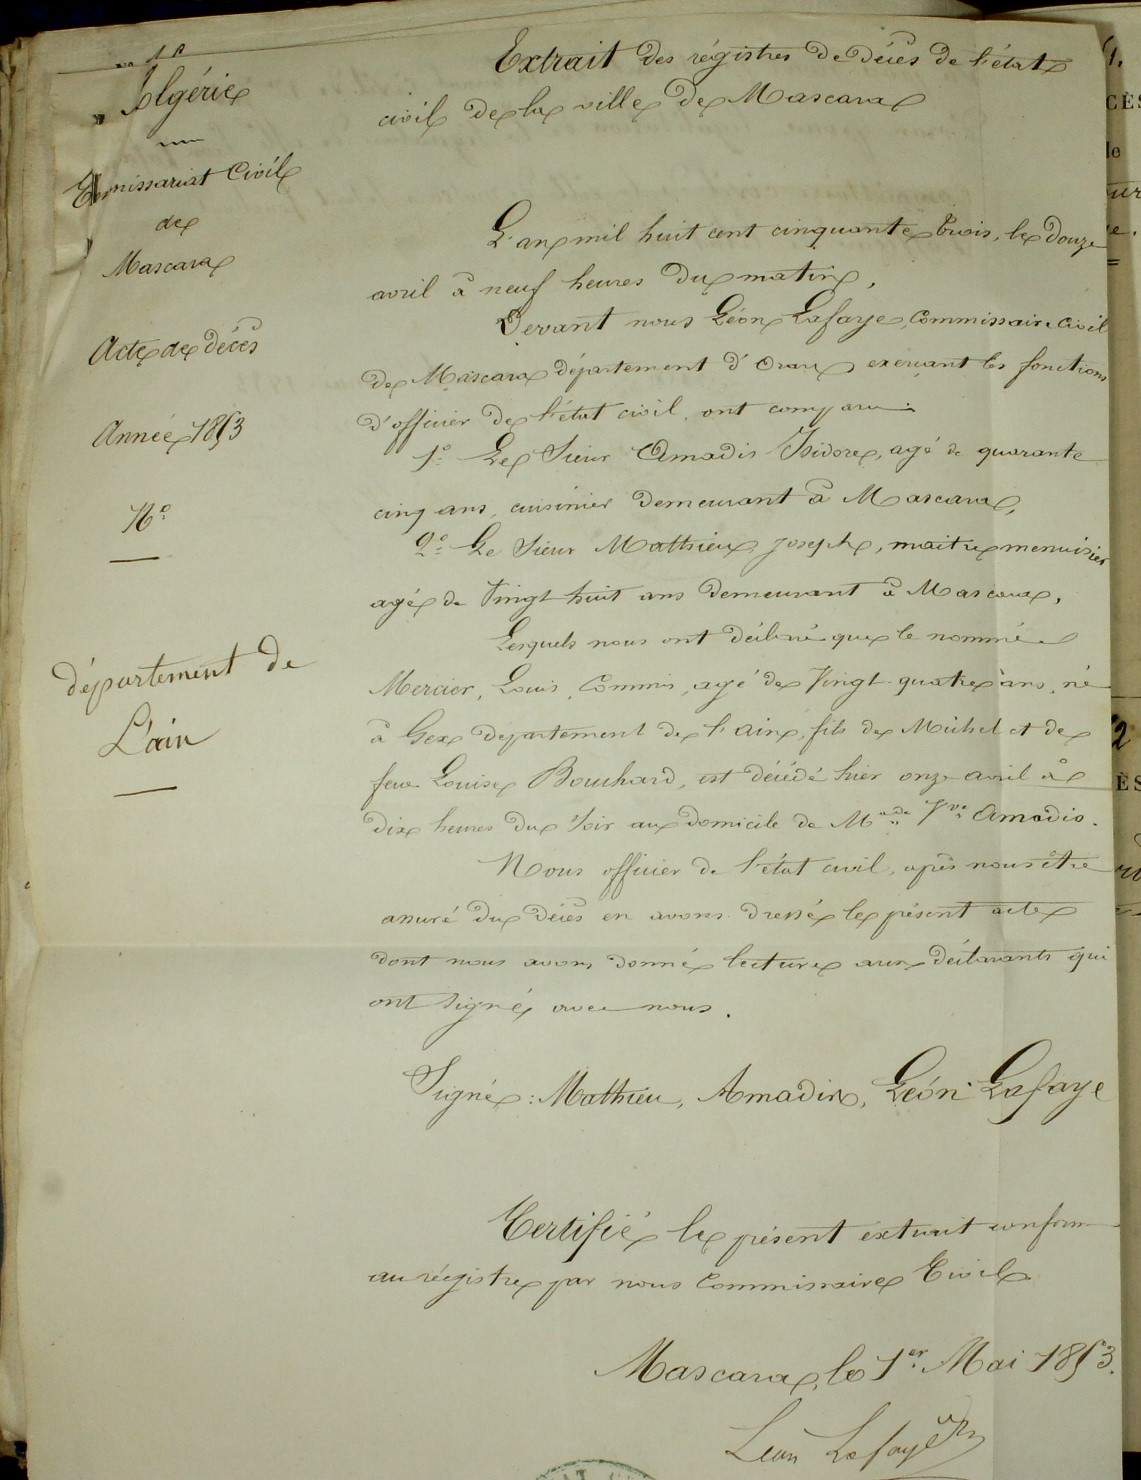 Algérie
Commissariat Civil
de
Mascara
Acte de décès
Année 1853
N°
département de
L'ain
Extrait des régistres de décès de l'état
civil de la ville de Mascara
L'an mil huit cent cinquante trois, le douze
avril à neuf heures du matin,
Devant nous Léon Lafaye, Commissaire Civil
de Mascara département d'Oran exerçant les fonctions
d'officier de l'état civil, ont comparu:
1° Le Sieur Amadis Isidore, agé de quarante
cinq ans, cuisinier demeurant à Mascara,
2° Le Sieur Matthieu Joseph, maitre menuisier
agé de Vingt huit ans demeurant à Mascara,
Lesquels nous ont déclaré que le nommé
Mercier, Louis, Commis, agé de Vingt quatre ans, né
à Gex département de l'ain, fils de Michel et de
feue Louise Bouchard, est décédé hier onze avril à
dix heures du soir au domicile de M.de Vve Amadis.
Nous officier de l'état civil, après nous être
assuré du décès en avons dressé le présent acte
dont nous avons donné lecture aux déclarants qui
ont signé avec nous.
Signé: Mathieu, Amadis, Léon Lafaye
Certifié le présent extrait conforme
au régistre par nous Commissaire Civil
Mascara, le 1er Mai 1853.
Léon Lafaye